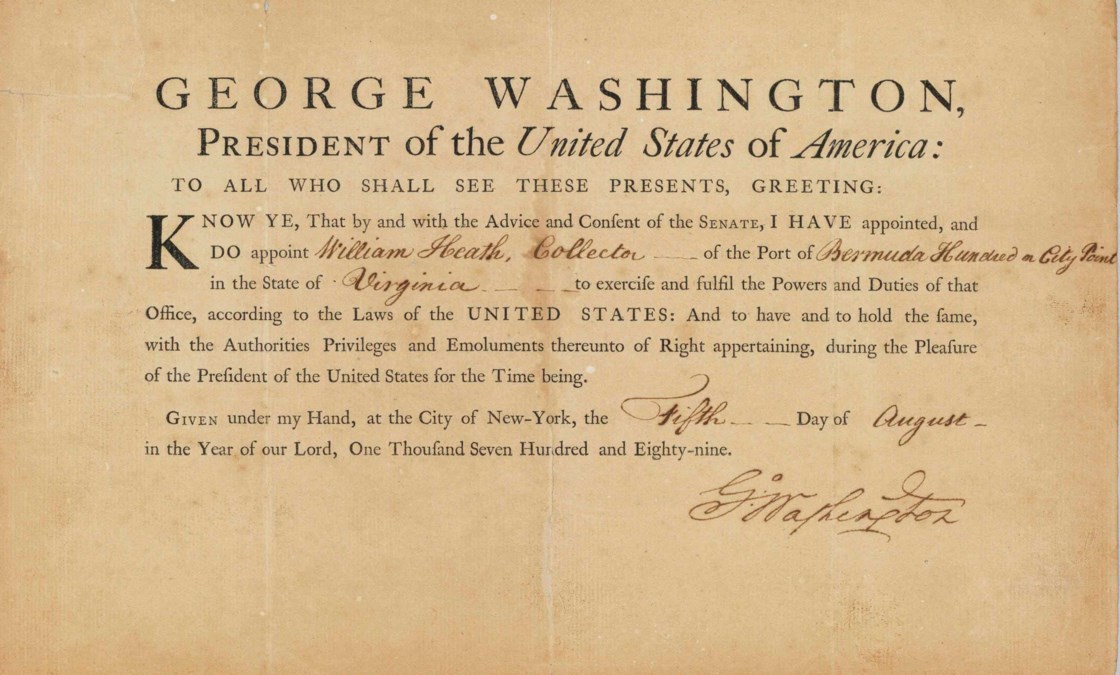 GEORGE WASHINGTON,
PRESIDENT of the United States of America:
TO ALL WHO SHALL SEE THESE PRESENTS, GREETING:
KNOW YE, That by and with the Advice and Conſent of the SENATE, I HAVE appointed, and
DO appoint William Heath, Collector — of the Port of Bermuda Hundred or City Point
in the State of Virginia — — to exerciſe and fulfil the Powers and Duties of that
Office, according to the Laws of the UNITED STATES: And to have and to hold the ſame,
with the Authorities Privileges and Emoluments thereunto of Right appertaining, during the Pleaſure
of the Preſident of the United States for the Time being.
GIVEN under my Hand, at the City of New-York, the Fifth — — Day of August —
in the Year of our Lord, One Thouſand Seven Hundred and Eighty-nine.
Go: Washington